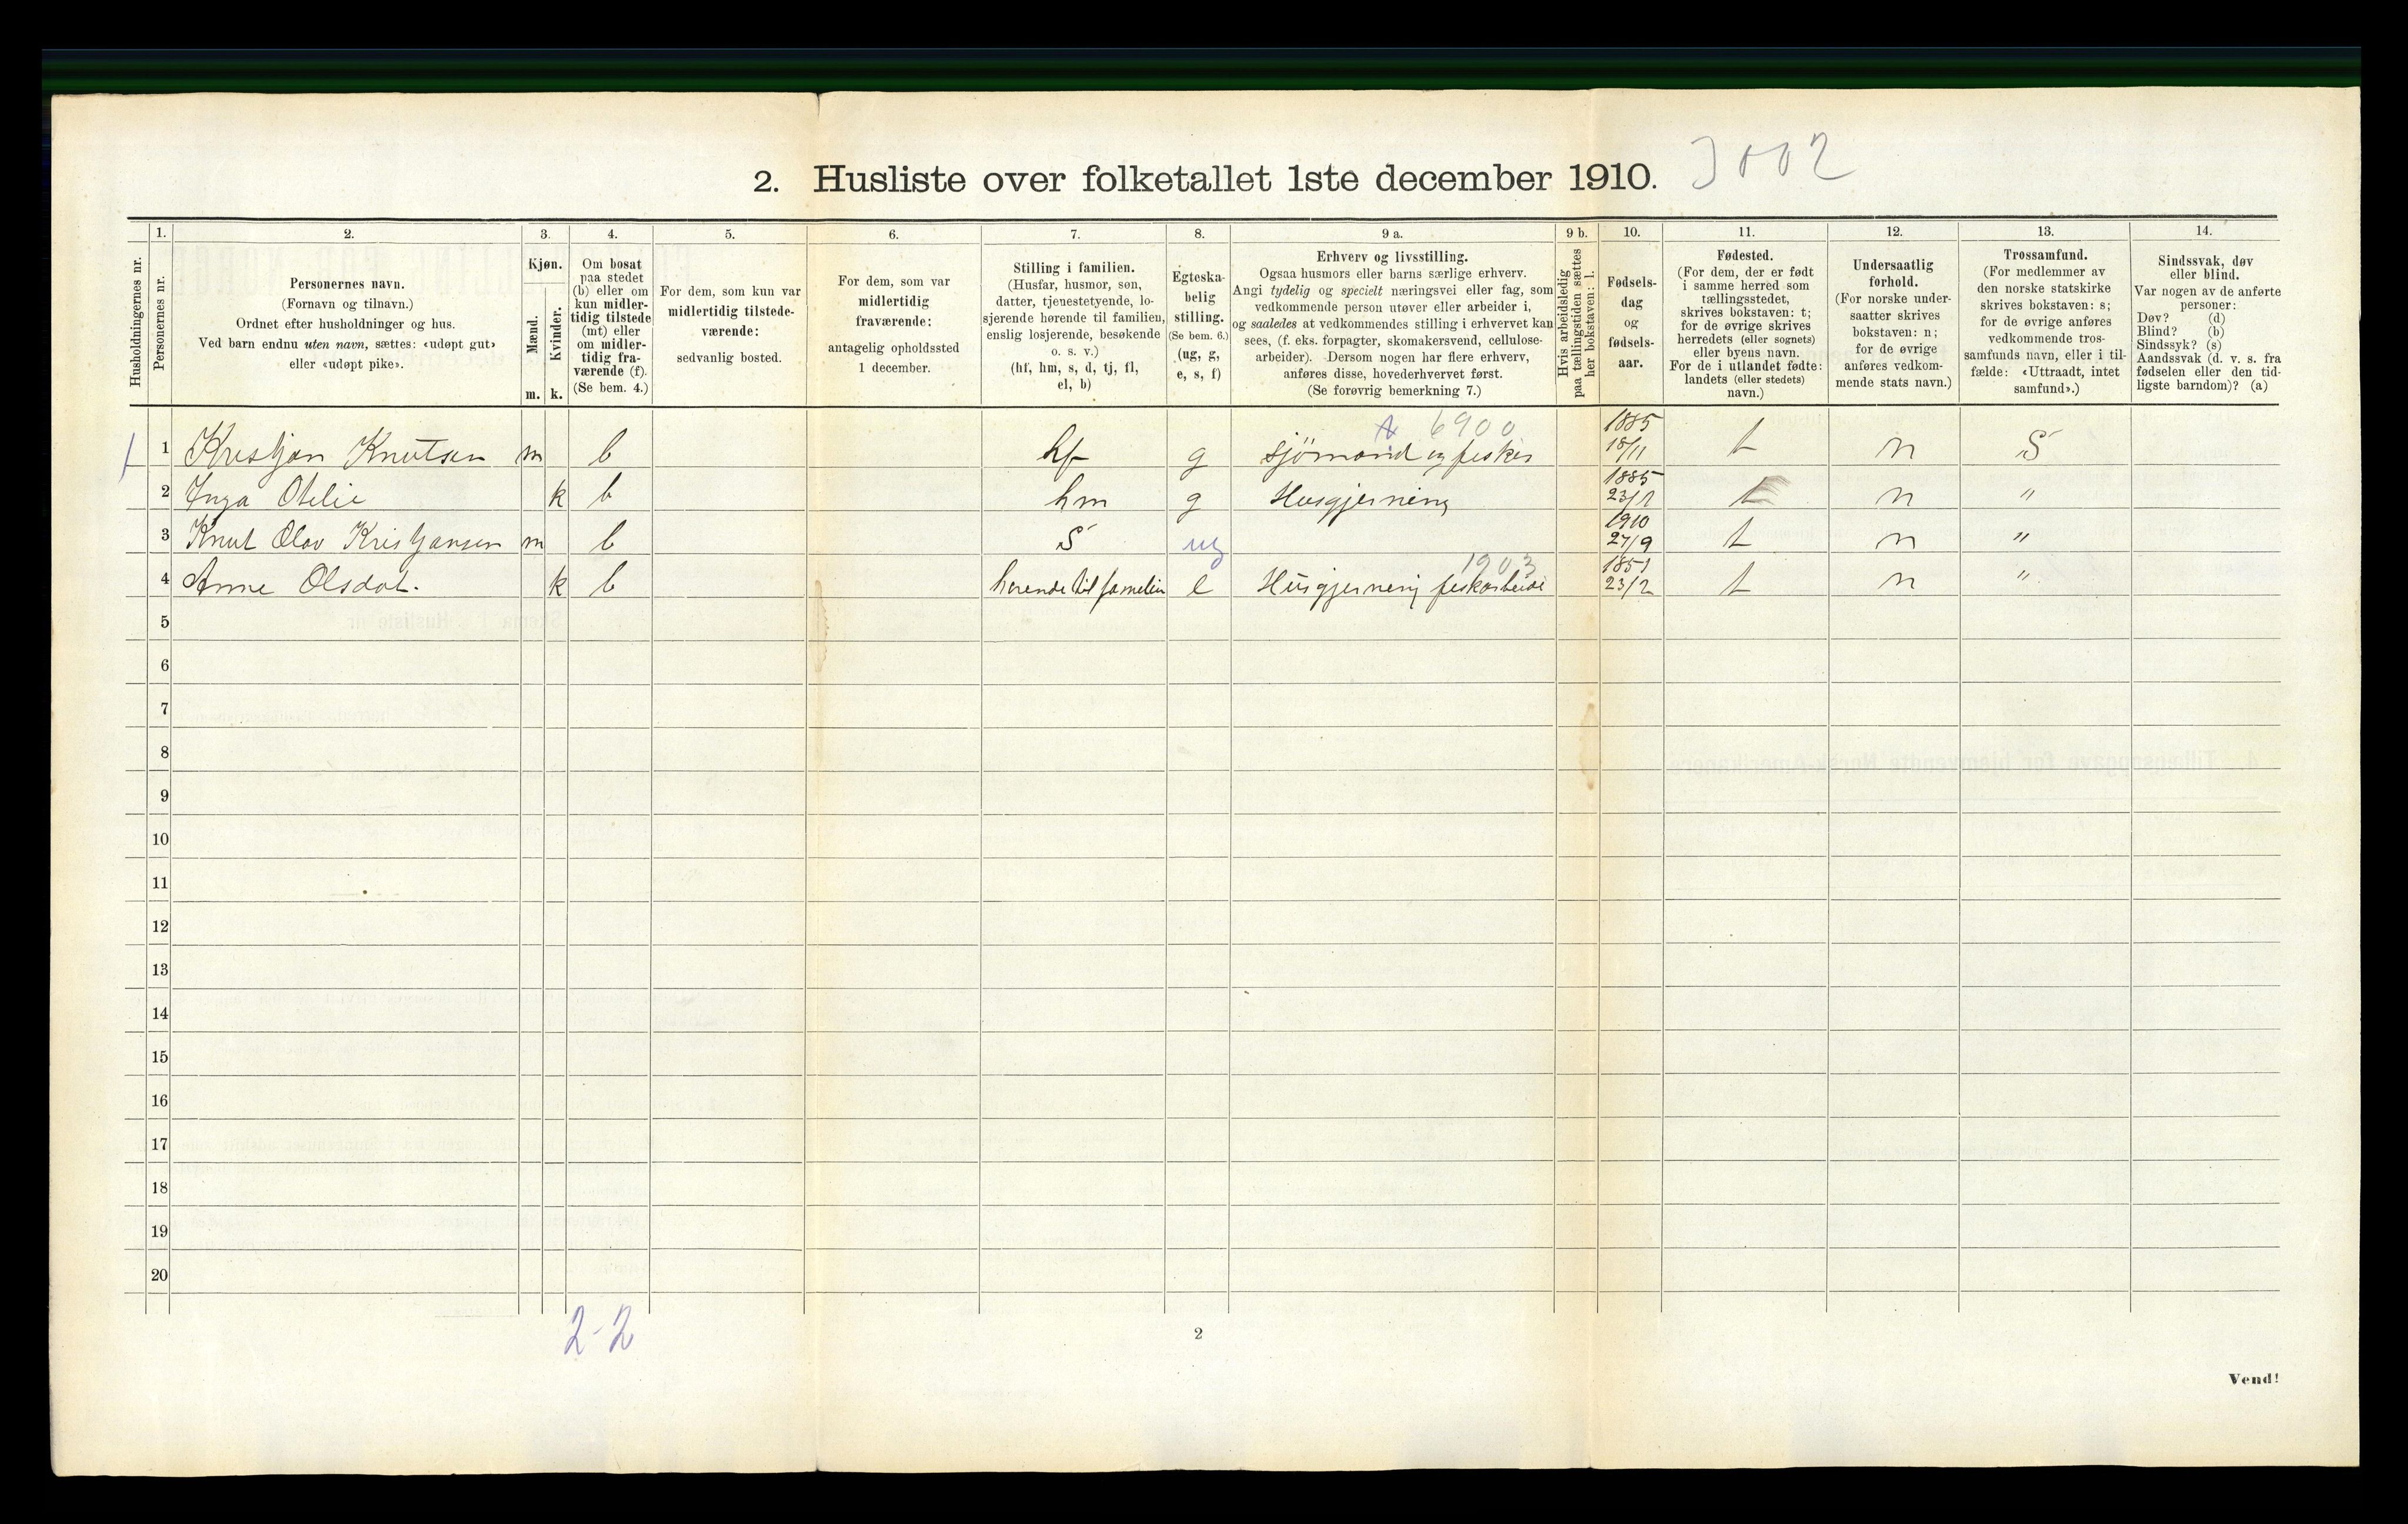 2. Husliste over folketallet 1ste december 1910. 3002
1. 2. 3. 4. 5. 6. 7. 8. 9 a. 9 b. 10. 11. 12. 13. 14.
Husholdningernes nr.
Personernes nr.
Personernes navn.
(Fornavn og tilnavn.)
Ordnet efter husholdninger og hus.
Ved barn endnu uten navn, sættes: «udøpt gut»
eller «udøpt pike».
Kjøn.
Mænd.
Kvinder.
m. k.
Om bosat
paa stedet
(b) eller om
kun midler-
tidig tilstede
(mt) eller
om midler-
tidig fra-
værende (f).
(Se bem. 4.)
For dem, som kun var
midlertidig tilstede-
værende:
sedvanlig bosted.
For dem, som var
midlertidig
fraværende:
antagelig opholdssted
1 december.
Stilling i familien.
(Husfar, husmor, søn,
datter, tjenestetyende, lo-
sjerende hørende til familien,
enslig losjerende, besøkende
o. s. v.)
(hf, hm, s, d, tj, fl,
el, b)
Egteska-
belig
stilling.
(Se bem. 6.)
(ug, g,
e, s, f)
Erhverv og livsstilling.
Ogsaa husmors eller barns særlige erhverv.
Angi tydelig og specielt næringsvei eller fag, som
vedkommende person utøver eller arbeider i,
og saaledes at vedkommendes stilling i erhvervet kan
sees, (f. eks. forpagter, skomakersvend, cellulose-
arbeider). Dersom nogen har flere erhverv,
anføres disse, hovederhvervet først.
(Se forøvrig bemerkning 7.)
Hvis arbeidsledig
paa tællingstiden sættes
her bokstaven: l.
Fødsels-
dag
og
fødsels-
aar.
Fødested.
(For dem, der er født
i samme herred som
tællingsstedet,
skrives bokstaven: t;
for de øvrige skrives
herredets (eller sognets)
eller byens navn.
For de i utlandet fødte:
landets (eller stedets)
navn.)
Undersaatlig
forhold.
(For norske under-
saatter skrives
bokstaven: n;
for de øvrige
anføres vedkom-
mende stats navn.)
Trossamfund.
(For medlemmer av
den norske statskirke
skrives bokstaven: s;
for de øvrige anføres
vedkommende tros-
samfunds navn, eller i til-
fælde: «Uttraadt, intet
samfund».)
Sindssvak, døv
eller blind.
Var nogen av de anførte
personer:
Døv? (d)
Blind? (b)
Sindssyk? (s)
Aandssvak (d. v. s. fra
fødselen eller den tid-
ligste barndom)? (a)
6900
1 Kristjan Knutsen m b hf g sjömand og fesker 1885 18/11 t n S
2 Inga Otelie k b hm g Husgjerning 1885 23/1 t n "
3 Knut Olav Kristjansen m b S ug 1910 27/9 t n "
1903
4 Anne Olsdat. k b herende til familien e Husgjerning feskarbeide 1851 23/2 t n "
5
6
7
8
9
10
11
12
13
14
15
16
17
18
19
20
2-2
2
Vend!